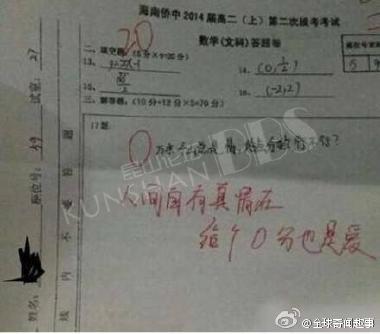 海南侨中2014届高二(上)第二次段考考试
数学(文科)答题卷
20
二、填空题(5分×4=20分)
13、
14、(0,1/2)
15、
16、(-2,2)
三、解答题:(10分+12分×5=70分)
17题
0
人间自有真情在
给个0分也是爱
试室:27
座位号:49
姓名:
线内不要答题
昆山论坛
KUNSHAN BBS
@全球奇闻趣事